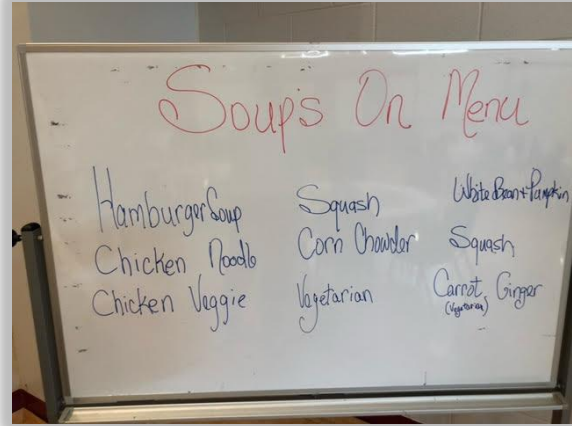 Soup's On Menu
Hamburger Soup
Chicken Noodle
Chicken Veggie
Squash
Corn Chowder
Vegetarian
White Bean + Pumpkin
Squash
Carrot, Ginger
(Vegetarian)